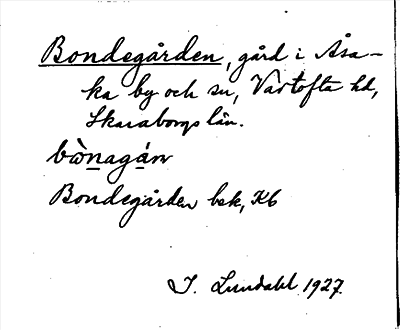 Bondegården, gård i Åsa-
ka by och sn, Vartofta hd,
Skaraborgs län.
bò̀nagán
Bondegården bek, Kb
I. Lundahl 1927.